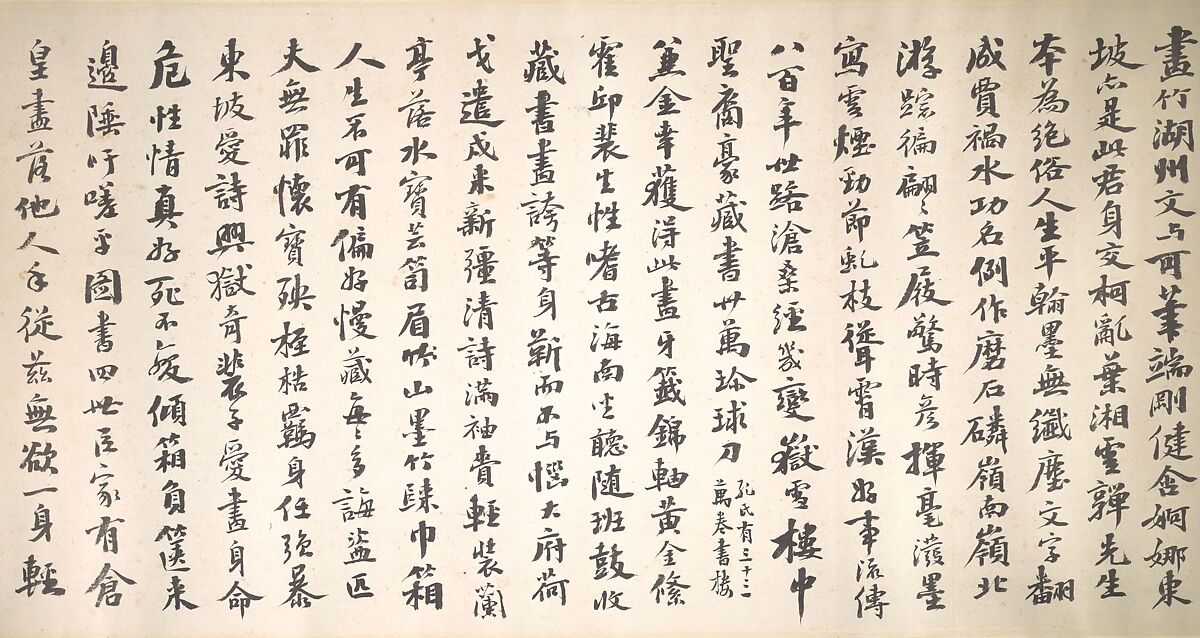 畫竹湖州文与可筆端剛健含婀娜東
坡亦是此君身交柯亂葉湘雲嚲先生
本為絕俗人生平翰墨無纖塵文字翻
成賈禍水功名例作磨石磷嶺南嶺北
游蹤徧翩〻笠屐驚時彥揮毫潑墨
寫雲煙勁節虬枝聳霄漢好事流傳
八百年世路滄桑經幾變嶽雪樓中
聖裔豪藏書卅萬珍球刀
孔氏有三十三
萬卷書樓
兼金幸獲得此畫牙籤錦軸黃金絛
霍邱裴生性嗜古海南坐聽隨班鼓收
藏書畫誇等身靳而不与慍大府荷
戈遣戍來新疆清詩滿袖賫輕裝蘭
亭落水寶芸笥眉州山墨竹隸巾箱
人生不可有偏好慢藏每〻多誨盜匹
夫無罪懷寶殃桎梏羈身任強暴
東坡愛詩興獄奇裴子愛畫身命
危性情真好死不變傾箱負篋來
邊陲吁嗟乎圖書四世臣家有倉
皇畫落他人手從茲無欲一身輕